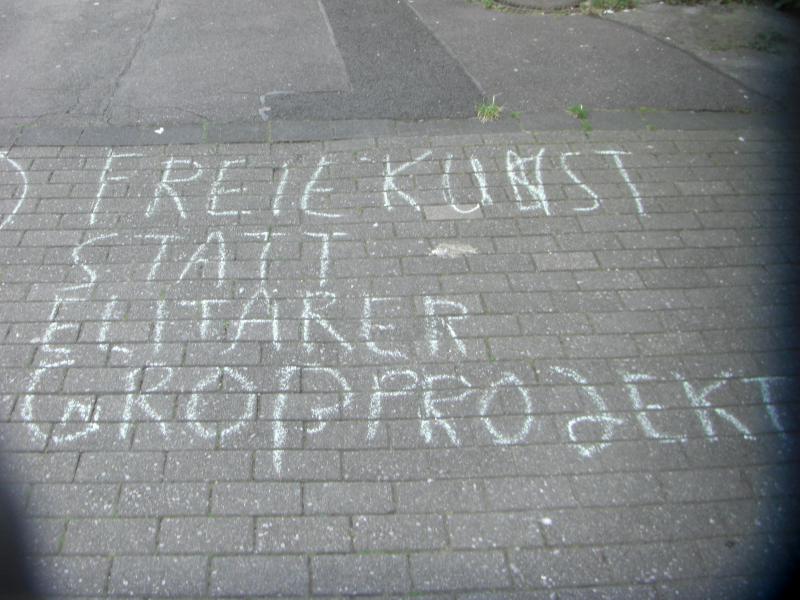 FREIE KUNST
STATT
ELITÄRER
GROßPROJEKT